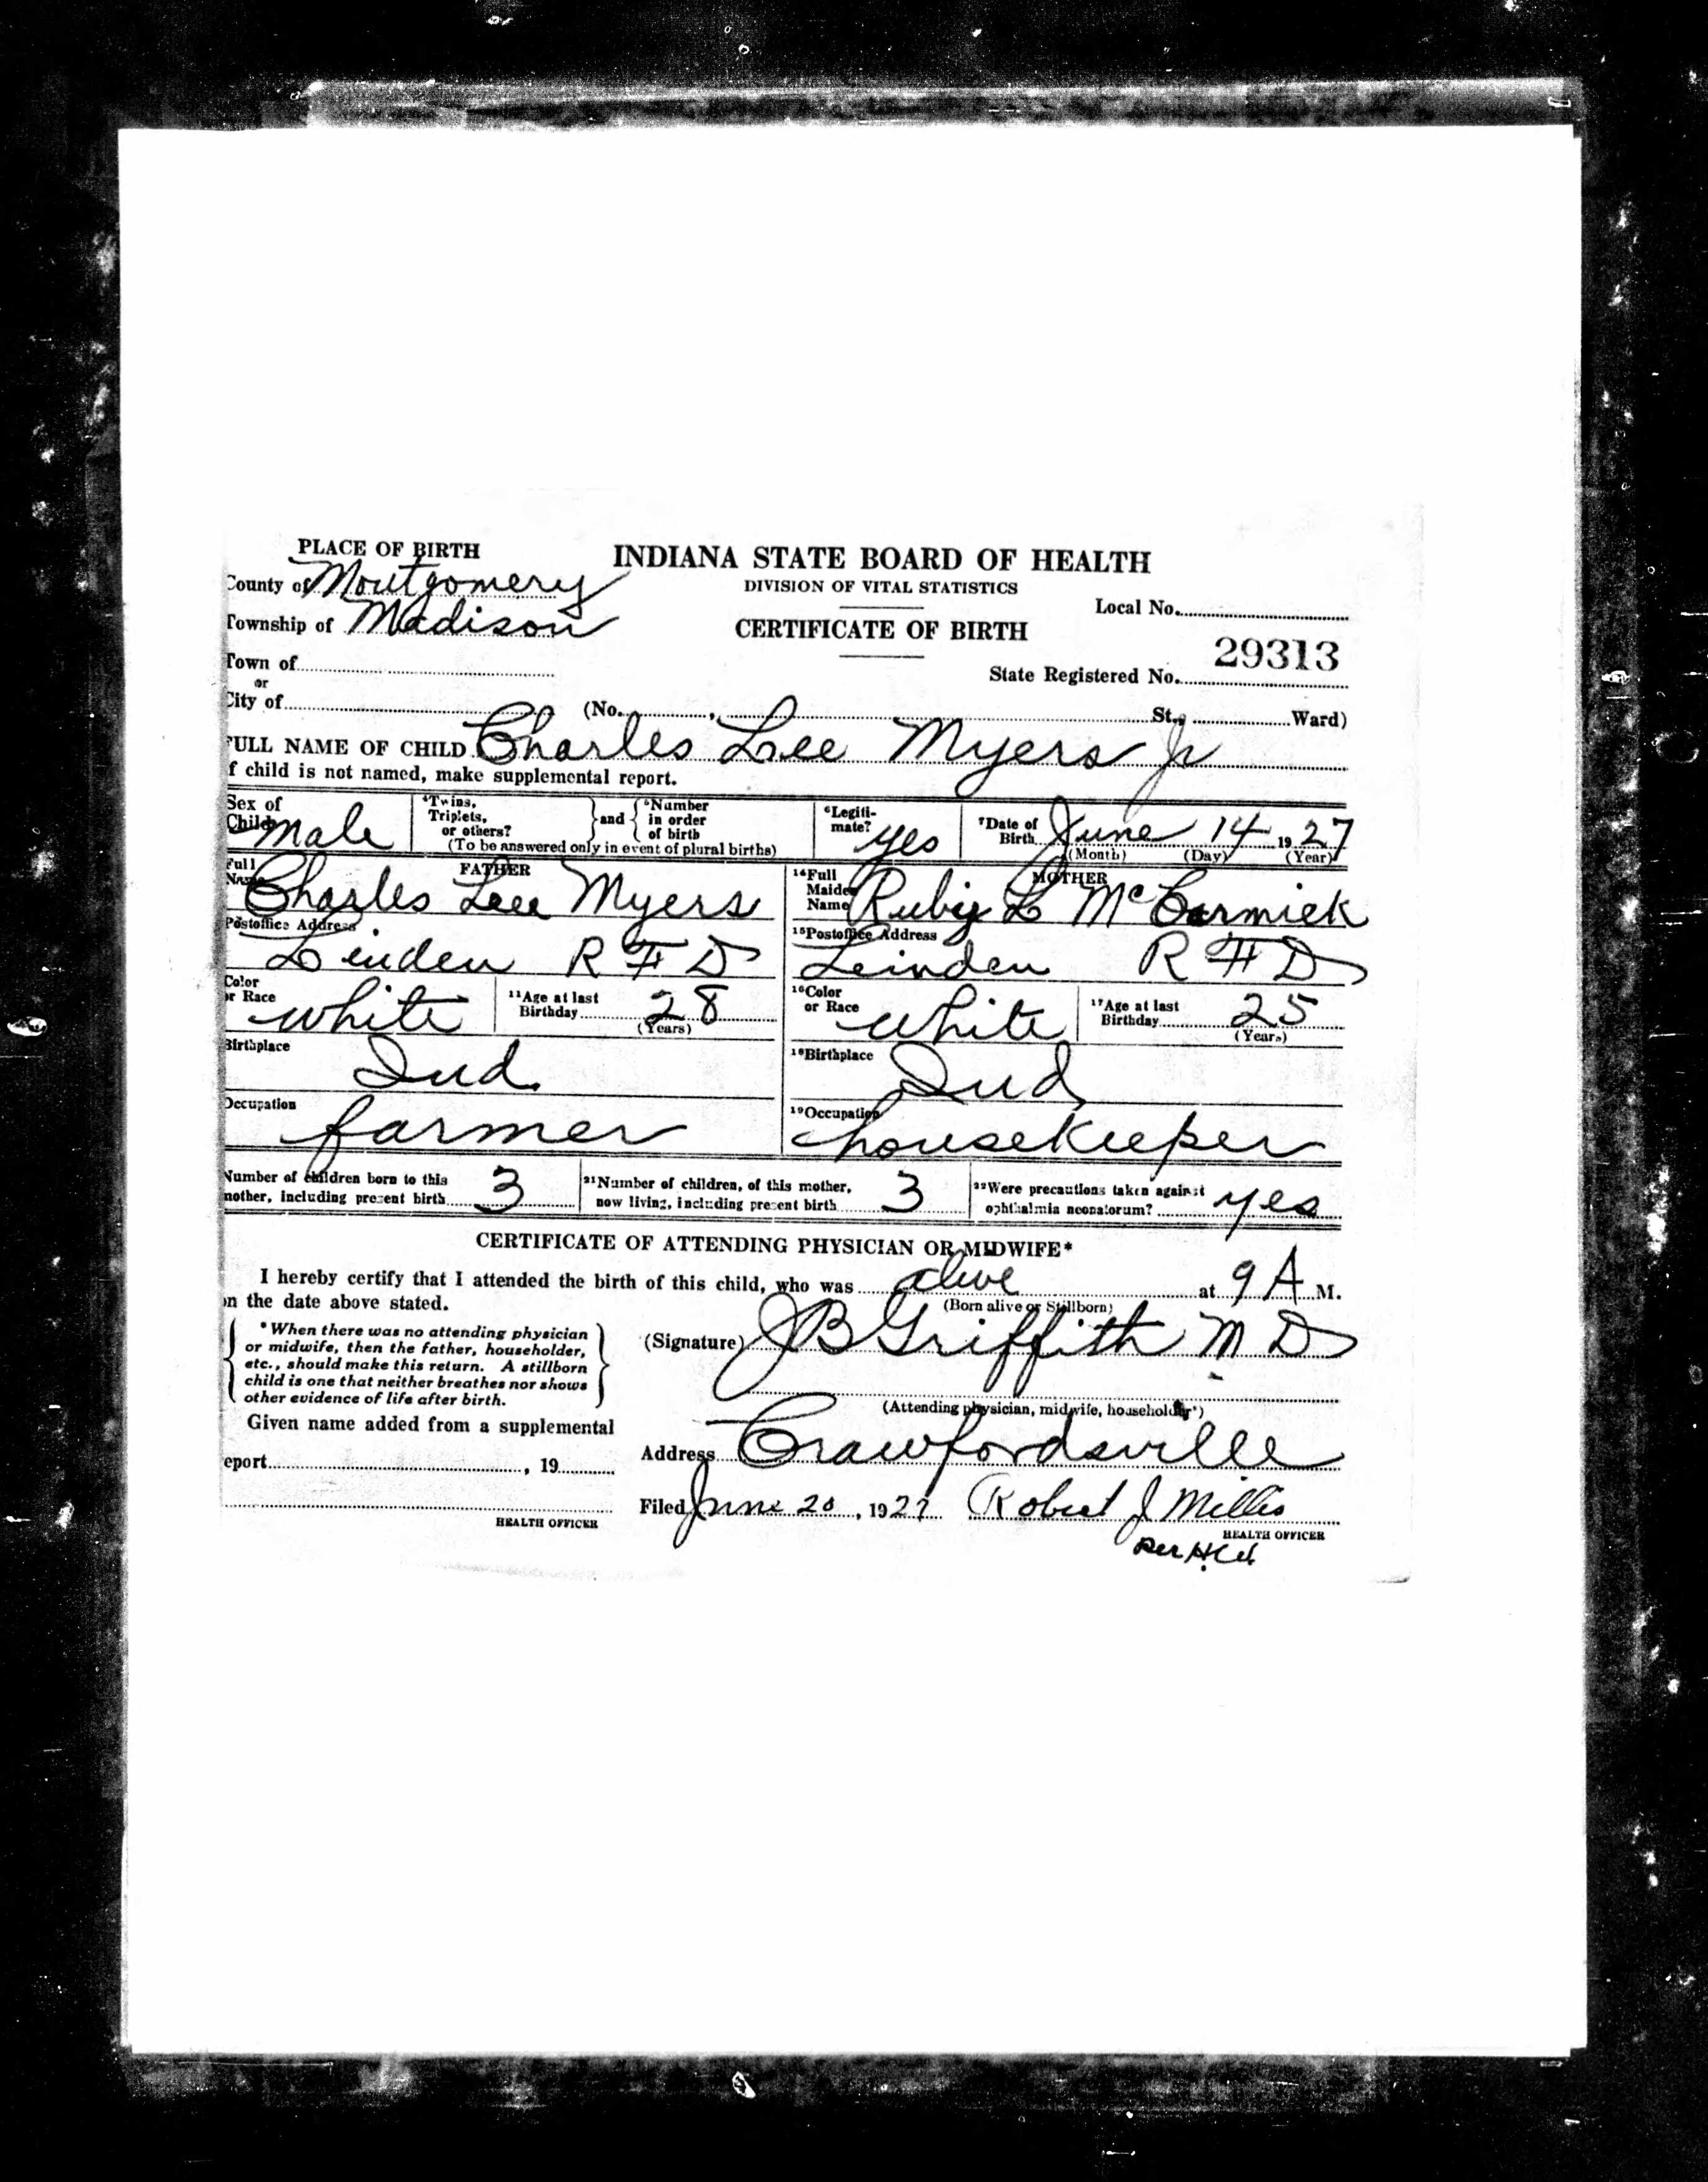 PLACE OF BIRTH
INDIANA STATE BOARD OF HEALTH
County of Montgomery
DIVISION OF VITAL STATISTICS
Local No.
Township of Madison
CERTIFICATE OF BIRTH
29313
Town of
State Registered No.
or
City of (No. , St., Ward)
FULL NAME OF CHILD Charles Lee Myers Jr
f child is not named, make supplemental report.
Sex of Child male
4Twins, Triplets, or others? and 5Number in order of birth
(To be answered only in event of plural births)
6Legiti-mate? yes
7Date of Birth June 14 1927
(Month) (Day) (Year)
FATHER
Full Name Charles Lee Myers
MOTHER
14Full Maiden Name Ruby L McCormick
Postoffice Address
Linden R F D
15Postoffice Address
Leinden R F D
Color or Race white
11Age at last Birthday 28
(Years)
16Color or Race white
17Age at last Birthday 25
(Years)
Birthplace
Ind.
18Birthplace
Ind
Occupation
farmer
19Occupation
housekeeper
Number of children born to this mother, including present birth 3
21Number of children, of this mother, now living, including present birth 3
22Were precautions taken against ophthalmia neonatorum? yes
CERTIFICATE OF ATTENDING PHYSICIAN OR MIDWIFE*
I hereby certify that I attended the birth of this child, who was alive at 9 A M.
(Born alive or Stillborn)
on the date above stated.
*When there was no attending physician
or midwife, then the father, householder,
etc., should make this return. A stillborn
child is one that neither breathes nor shows
other evidence of life after birth.
(Signature) J B Griffith M D
(Attending physician, midwife, householder*)
Given name added from a supplemental
eport , 19
Address Crawfordsville
Filed June 20, 1927 Robert J Millis
HEALTH OFFICER
HEALTH OFFICER
per